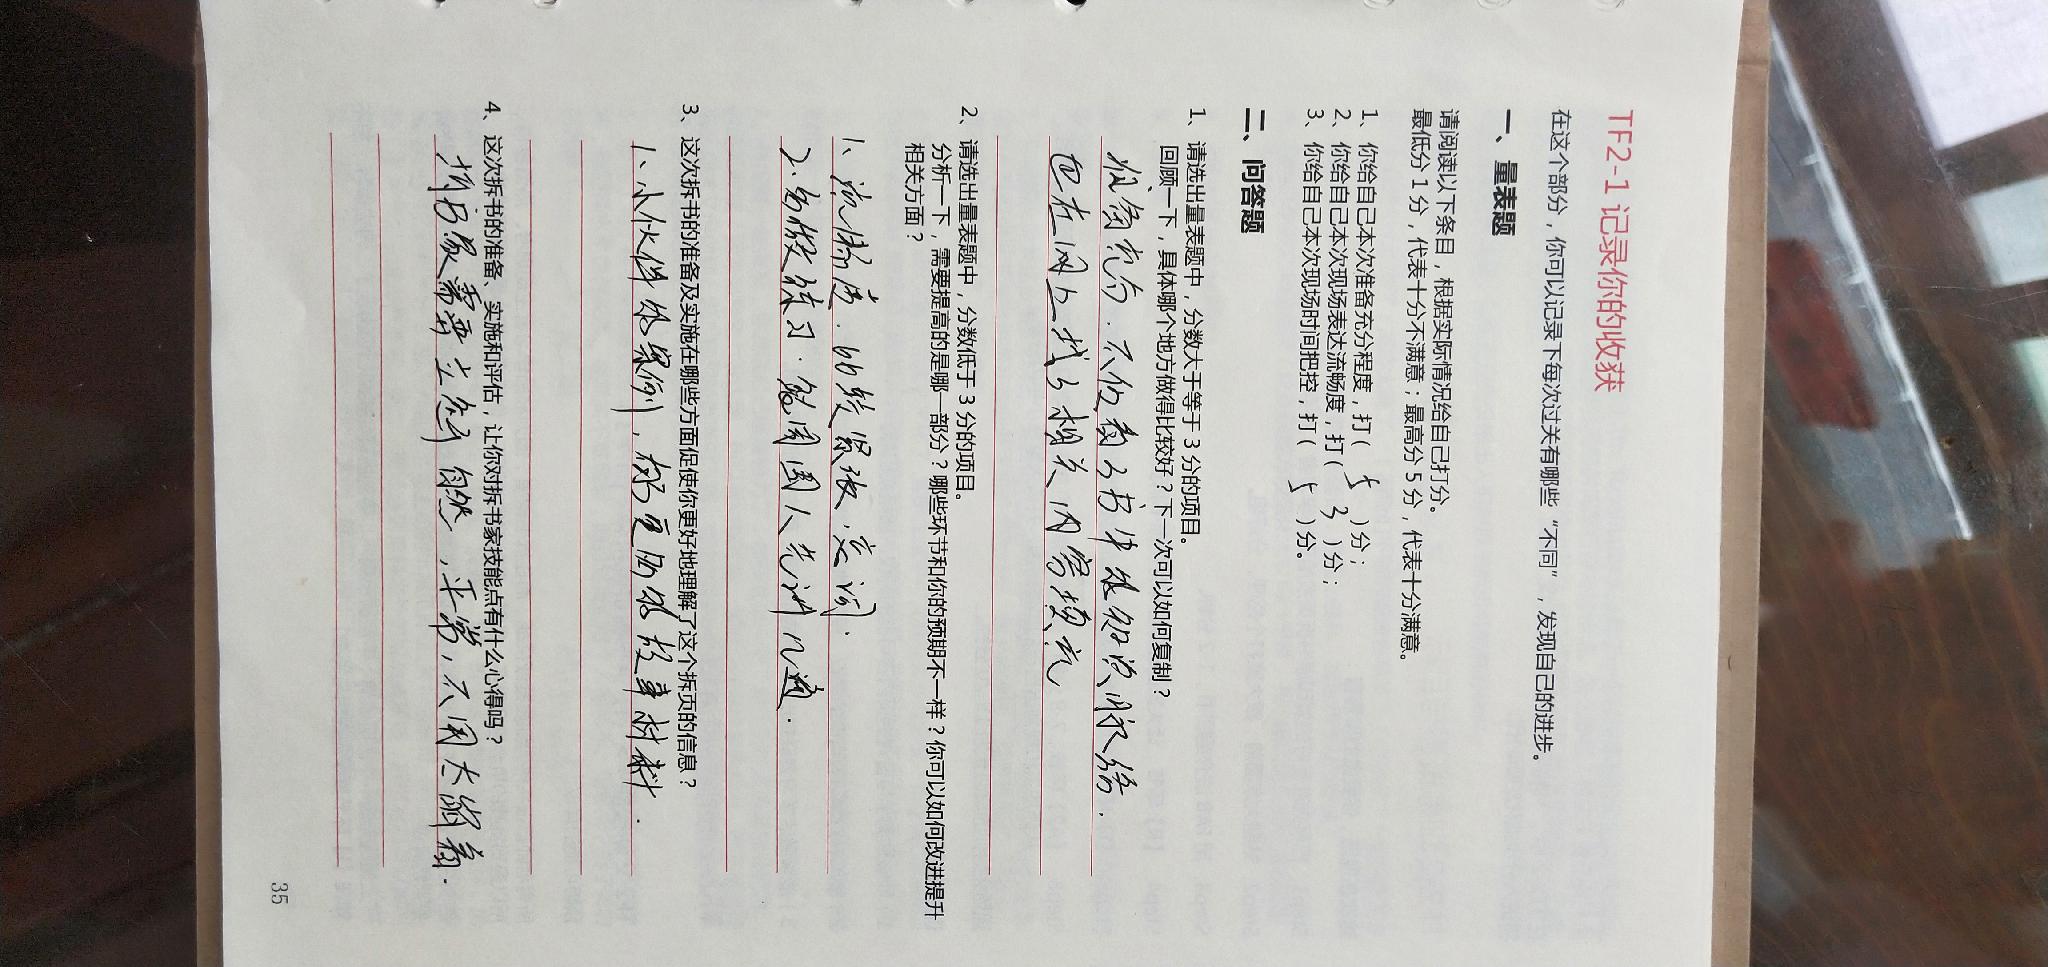 TF2-1 记录你的收获
在这个部分，你可以记录下每次过关有哪些“不同”，发现自己的进步。
一、量表题
请阅读以下条目，根据实际情况给自己打分。
最低分 1 分，代表十分不满意；最高分 5 分，代表十分满意。
1、你给自己本次准备充分程度，打( 5 )分；
2、你给自己本次现场表达流畅度，打( 3 )分；
3、你给自己本次现场时间把控，打( 5 )分。
二、问答题
1、请选出量表题中，分数大于等于 3 分的项目。
回顾一下，具体哪个地方做得比较好？下一次可以如何复制？
准备充分．不仅看了书中的知识脉络．
也在网上找了相关内容填充
2、请选出量表题中，分数低于 3 分的项目。
分析一下，需要提高的是哪一部分？哪些环节和你的预期不一样？你可以如何改进提升
相关方面？
1、流畅度．比较紧张．忘词．
2．多做练习．跟周围人先讲几遍．
3、这次拆书的准备及实施在哪些方面促使你更好地理解了这个拆页的信息？
1、小伙伴的案例，有更多的故事材料．
4、这次拆书的准备、实施和评估，让你对拆书家技能点有什么心得吗？
拆书家需要自然，平常，不用太端着．
35